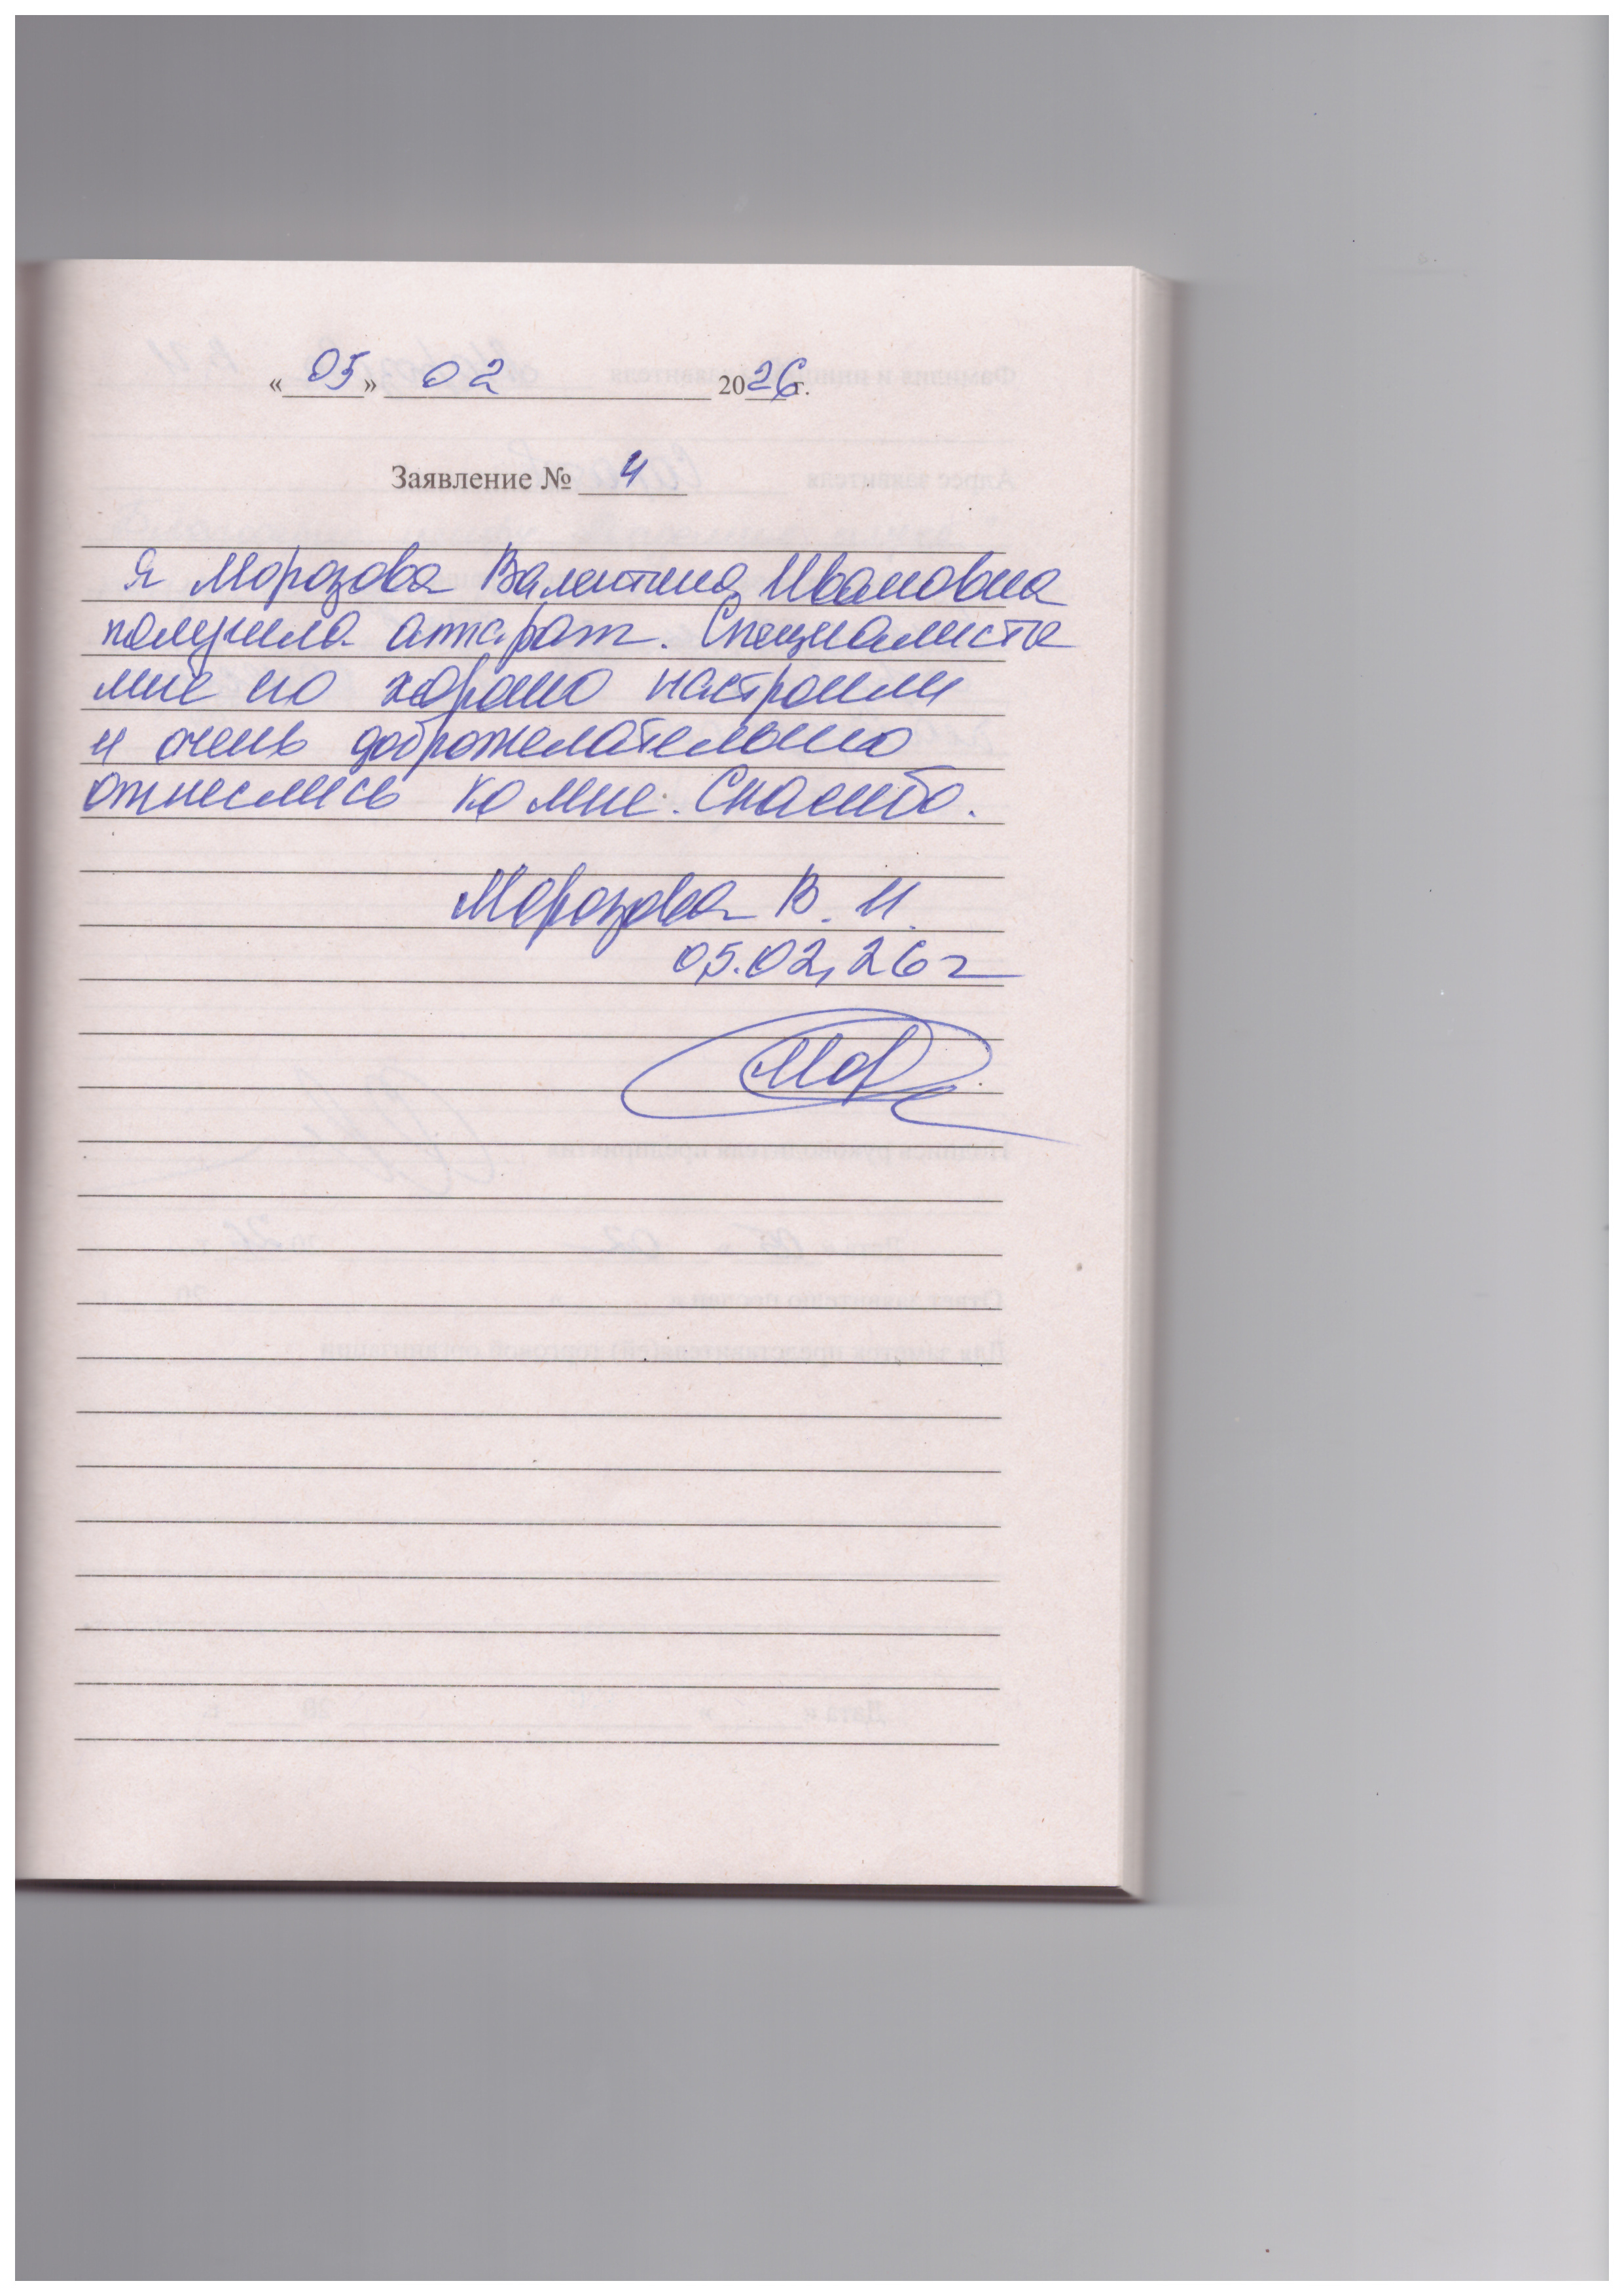 «05» 02 2026 г.
Заявление № 4
Я Морозова Валентина Ивановна
получила аппарат. Специалисты
мне его хорошо настроили
и очень доброжелательно
отнеслись ко мне. Спасибо.
Морозова В. И.
05.02.26 г
Мор